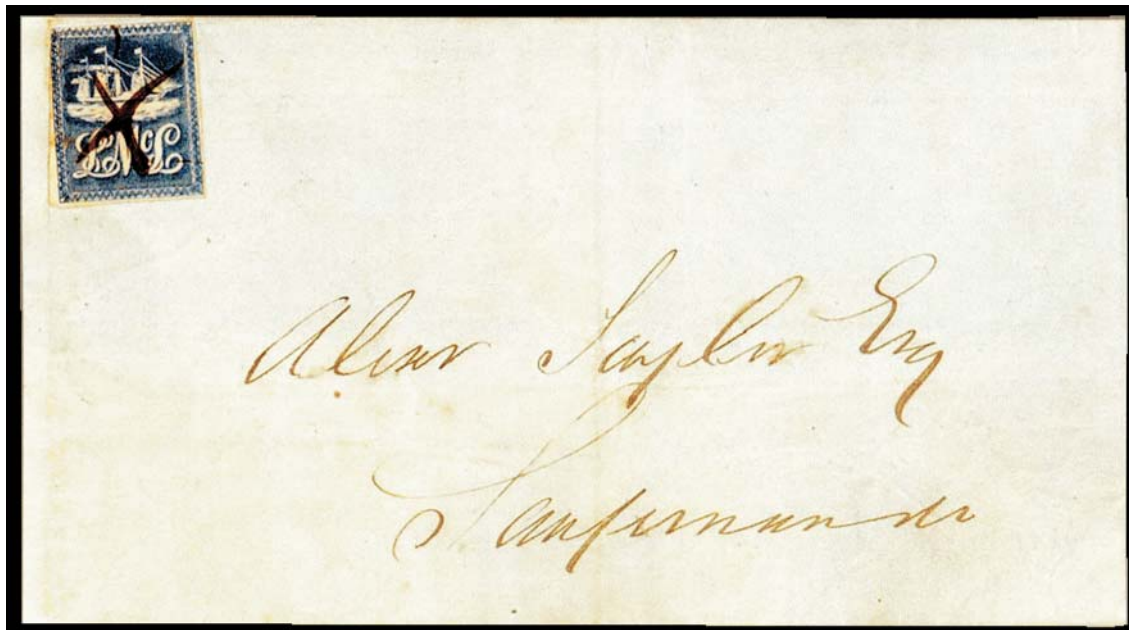 LMcL
Alexr Taylor Esq
Sanfernando